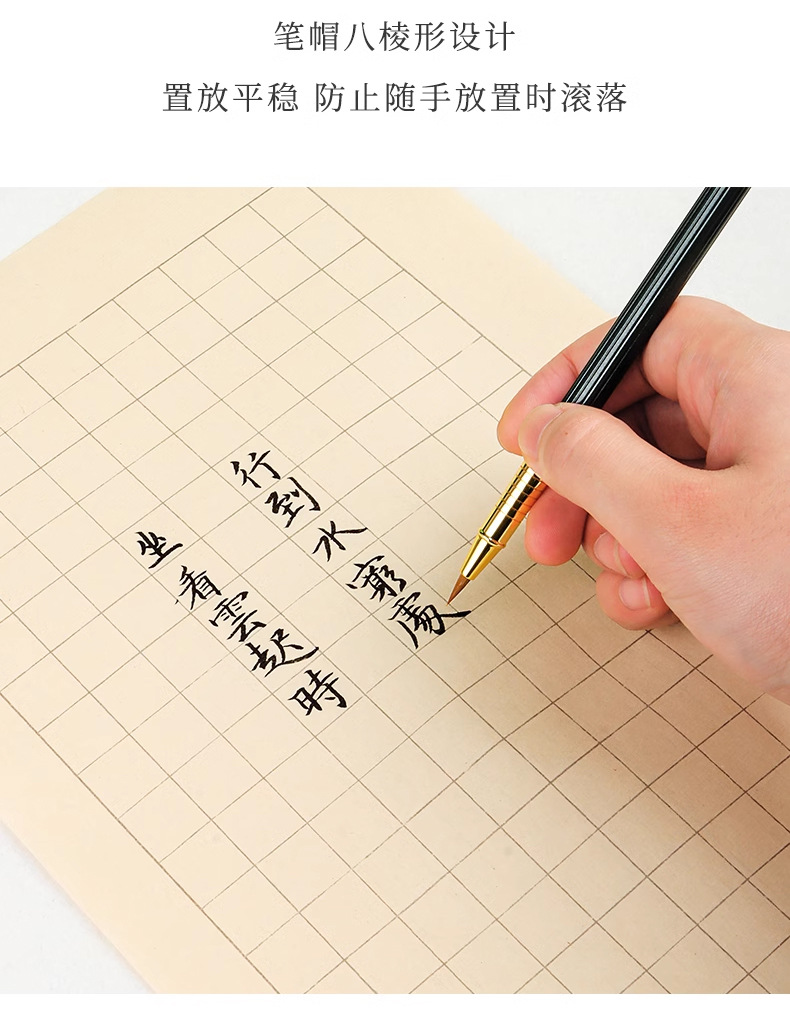 笔帽八棱形设计
置放平稳 防止随手放置时滚落
行到水窮處
坐看雲起時